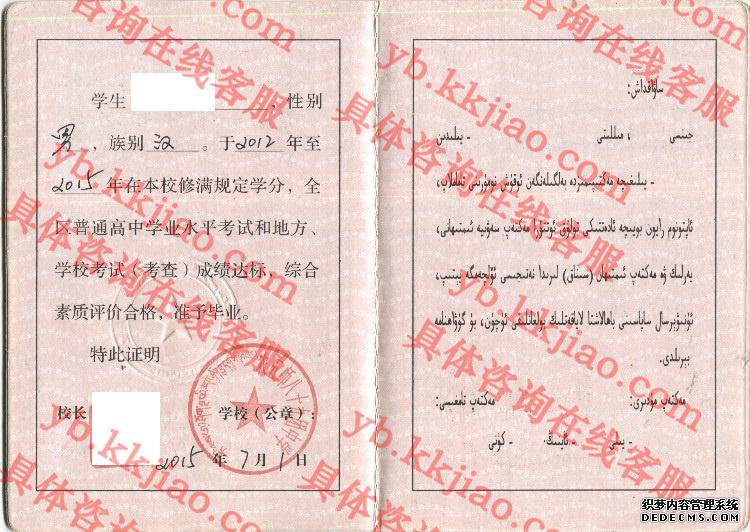 学生 ，性别
男，族别 汉 。于2012年至
2015年在本校修满规定学分，全
区普通高中学业水平考试和地方、
学校考试（考查）成绩达标，综合
素质评价合格，准予毕业。
特此证明
校长
学校（公章）：
2015年7月1日
ساۋاقداش:
جىنسى ، مىللىتى - يىلىدىن
- يىلىغىچە مەكتىپىمىزدە بەلگىلەنگەن ئوقۇش نومۇرىنى تاماملاپ،
ئاپتونوم رايون بويىچە ئادەتتىكى تولۇق ئوتتۇرا مەكتەپ سەۋىيە ئىمتىھانى،
يەرلىك ۋە مەكتەپ ئىمتىھان (سىناق) لىرىدا نەتىجىسى ئۆلچەمگە يېتىپ،
ئۇنىۋېرسال ساپاسىنى باھالاشتا لاياقەتلىك بولغانلىقى ئۈچۈن، بۇ گۇۋاھنامە
بېرىلدى.
مەكتەپ مۇدىرى: مەكتەپ تامغىسى:
- يىلى - ئاينىڭ - كۈنى
yb.kkjiao.com
具体咨询在线客服
织梦内容管理系统
DEDECMS.COM